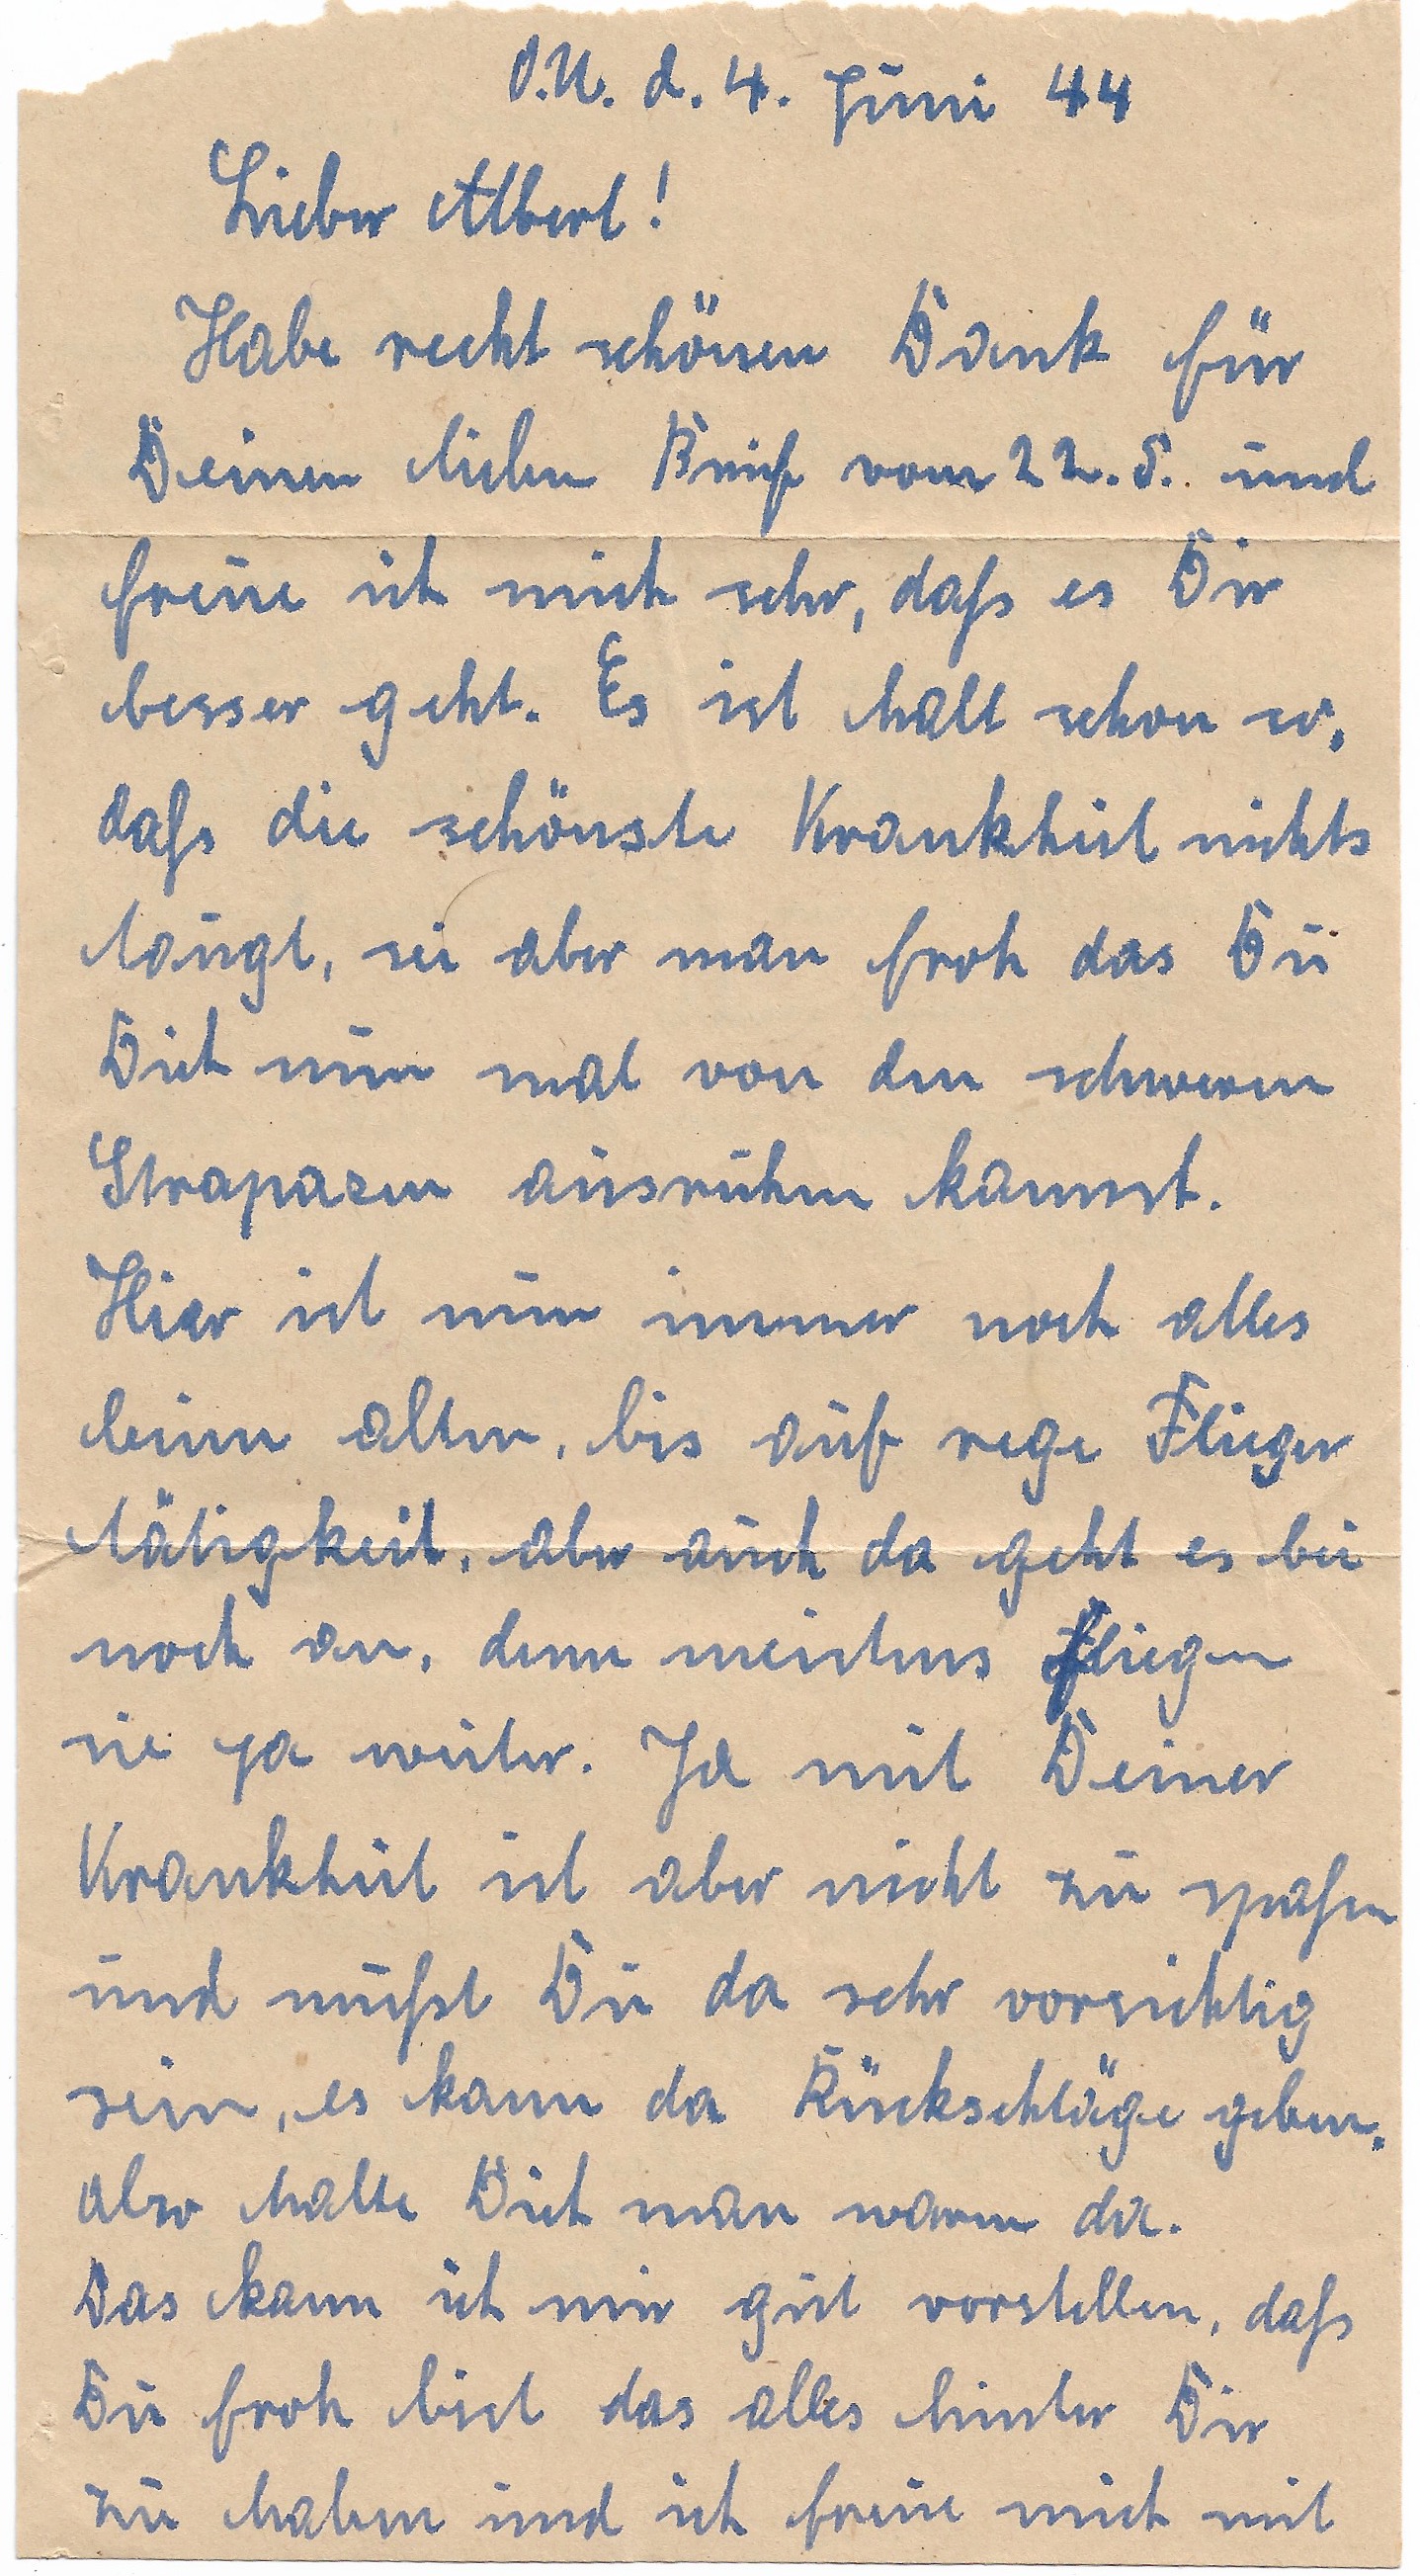 O.U. d. 4. Juni 44
Lieber Albert!
Habe recht schönen Dank für
Deinen lieben Brief vom 22.5. und
freue ich mich sehr, daß es Dir
besser geht. Es ist halt schon so,
daß die schönste Krankheit nichts
taugt, sei aber man froh das Du
Dich nun mal von den schweren
Strapazen ausruhen kannst.
Hier ist nun immer noch alles
beim alten, bis auf rege Flieger
tätigkeit, aber auch da geht es bei
noch an, denn meistens fliegen
sie ja weiter. Ja mit Deiner
Krankheit ist aber nicht zu spaßen
und mußt Du da sehr vorsichtig
sein, es kann da Rückschläge geben,
also halte Dich man warm da.
Das kann ich mir gut vorstellen, daß
Du froh bist das alles hinter Dir
zu haben und ich freue mich mit